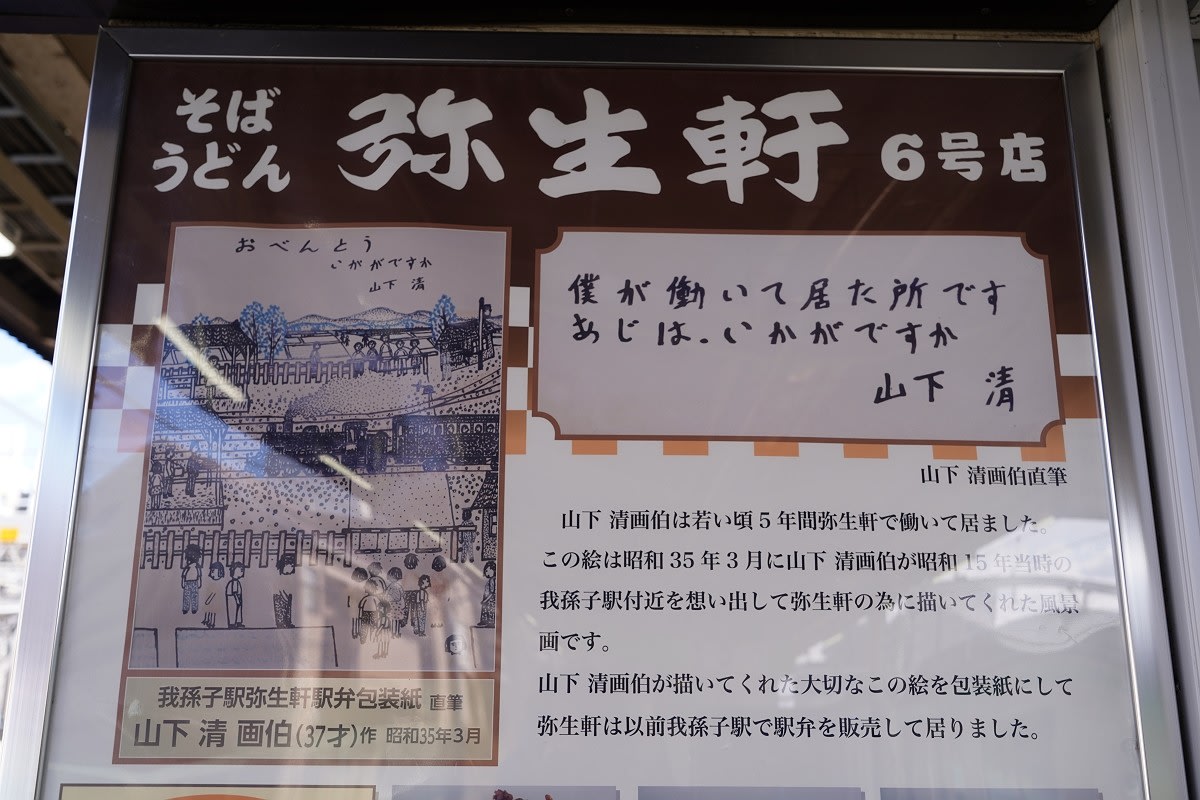 そば
うどん
弥生軒 6号店
おべんとう
いかがですか
山下 清
僕が働いて居た所です
あじは、いかがですか
山下 清
山下 清画伯直筆
山下 清画伯は若い頃5年間弥生軒で働いて居ました。
この絵は昭和35年3月に山下 清画伯が昭和15年当時の
我孫子駅付近を想い出して弥生軒の為に描いてくれた風景
画です。
山下 清画伯が描いてくれた大切なこの絵を包装紙にして
弥生軒は以前我孫子駅で駅弁を販売して居りました。
我孫子駅弥生軒駅弁包装紙 直筆
山下 清 画伯(37才)作 昭和35年3月